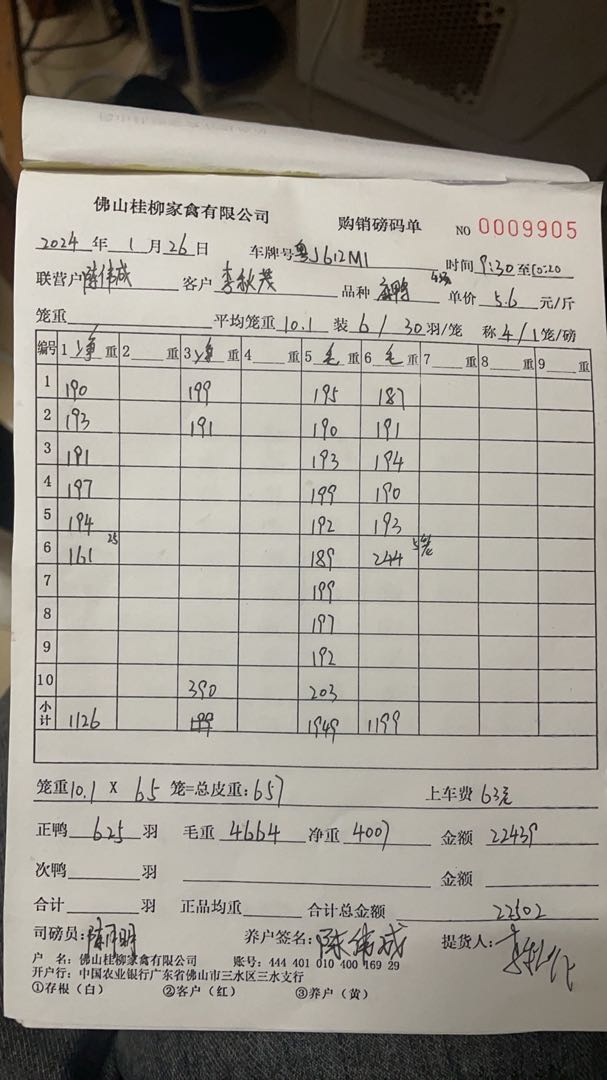 佛山桂柳家禽有限公司 购销磅码单 NO 0009905
2024 年 1 月 26 日 车牌号 粤J612M1 时间 9:30 至 10:20
联营户 陈伟成 客户 李秋茂 品种 麻鸭 单价 5.6 元/斤
笼重 平均笼重 10.1 装 6 / 30 羽/笼 称 4 / 1 笼/磅
编号 1 净 重 2 重 3 净 重 4 重 5 毛 重 6 毛 重 7 重 8 重 9 重
1 190 199 195 187
2 193 191 190 191
3 191 193 194
4 197 199 190
5 194 192 193
6 161 25 189 244 5笼
7 199
8 197
9 192
10 390 203
小计 1126 199 1949 1199
笼重 10.1 X 65 笼=总皮重: 657 上车费 63元
正鸭 625 羽 毛重 4664 净重 4007 金额 22439
次鸭 羽 金额
合计 羽 正品均重 合计总金额 22502
司磅员: 养户签名: 陈伟成 提货人:
户 名: 佛山桂柳家禽有限公司 账号: 444 401 010 400 169 29
开户行: 中国农业银行广东省佛山市三水区三水支行
①存根（白） ②客户（红） ③养户（黄）